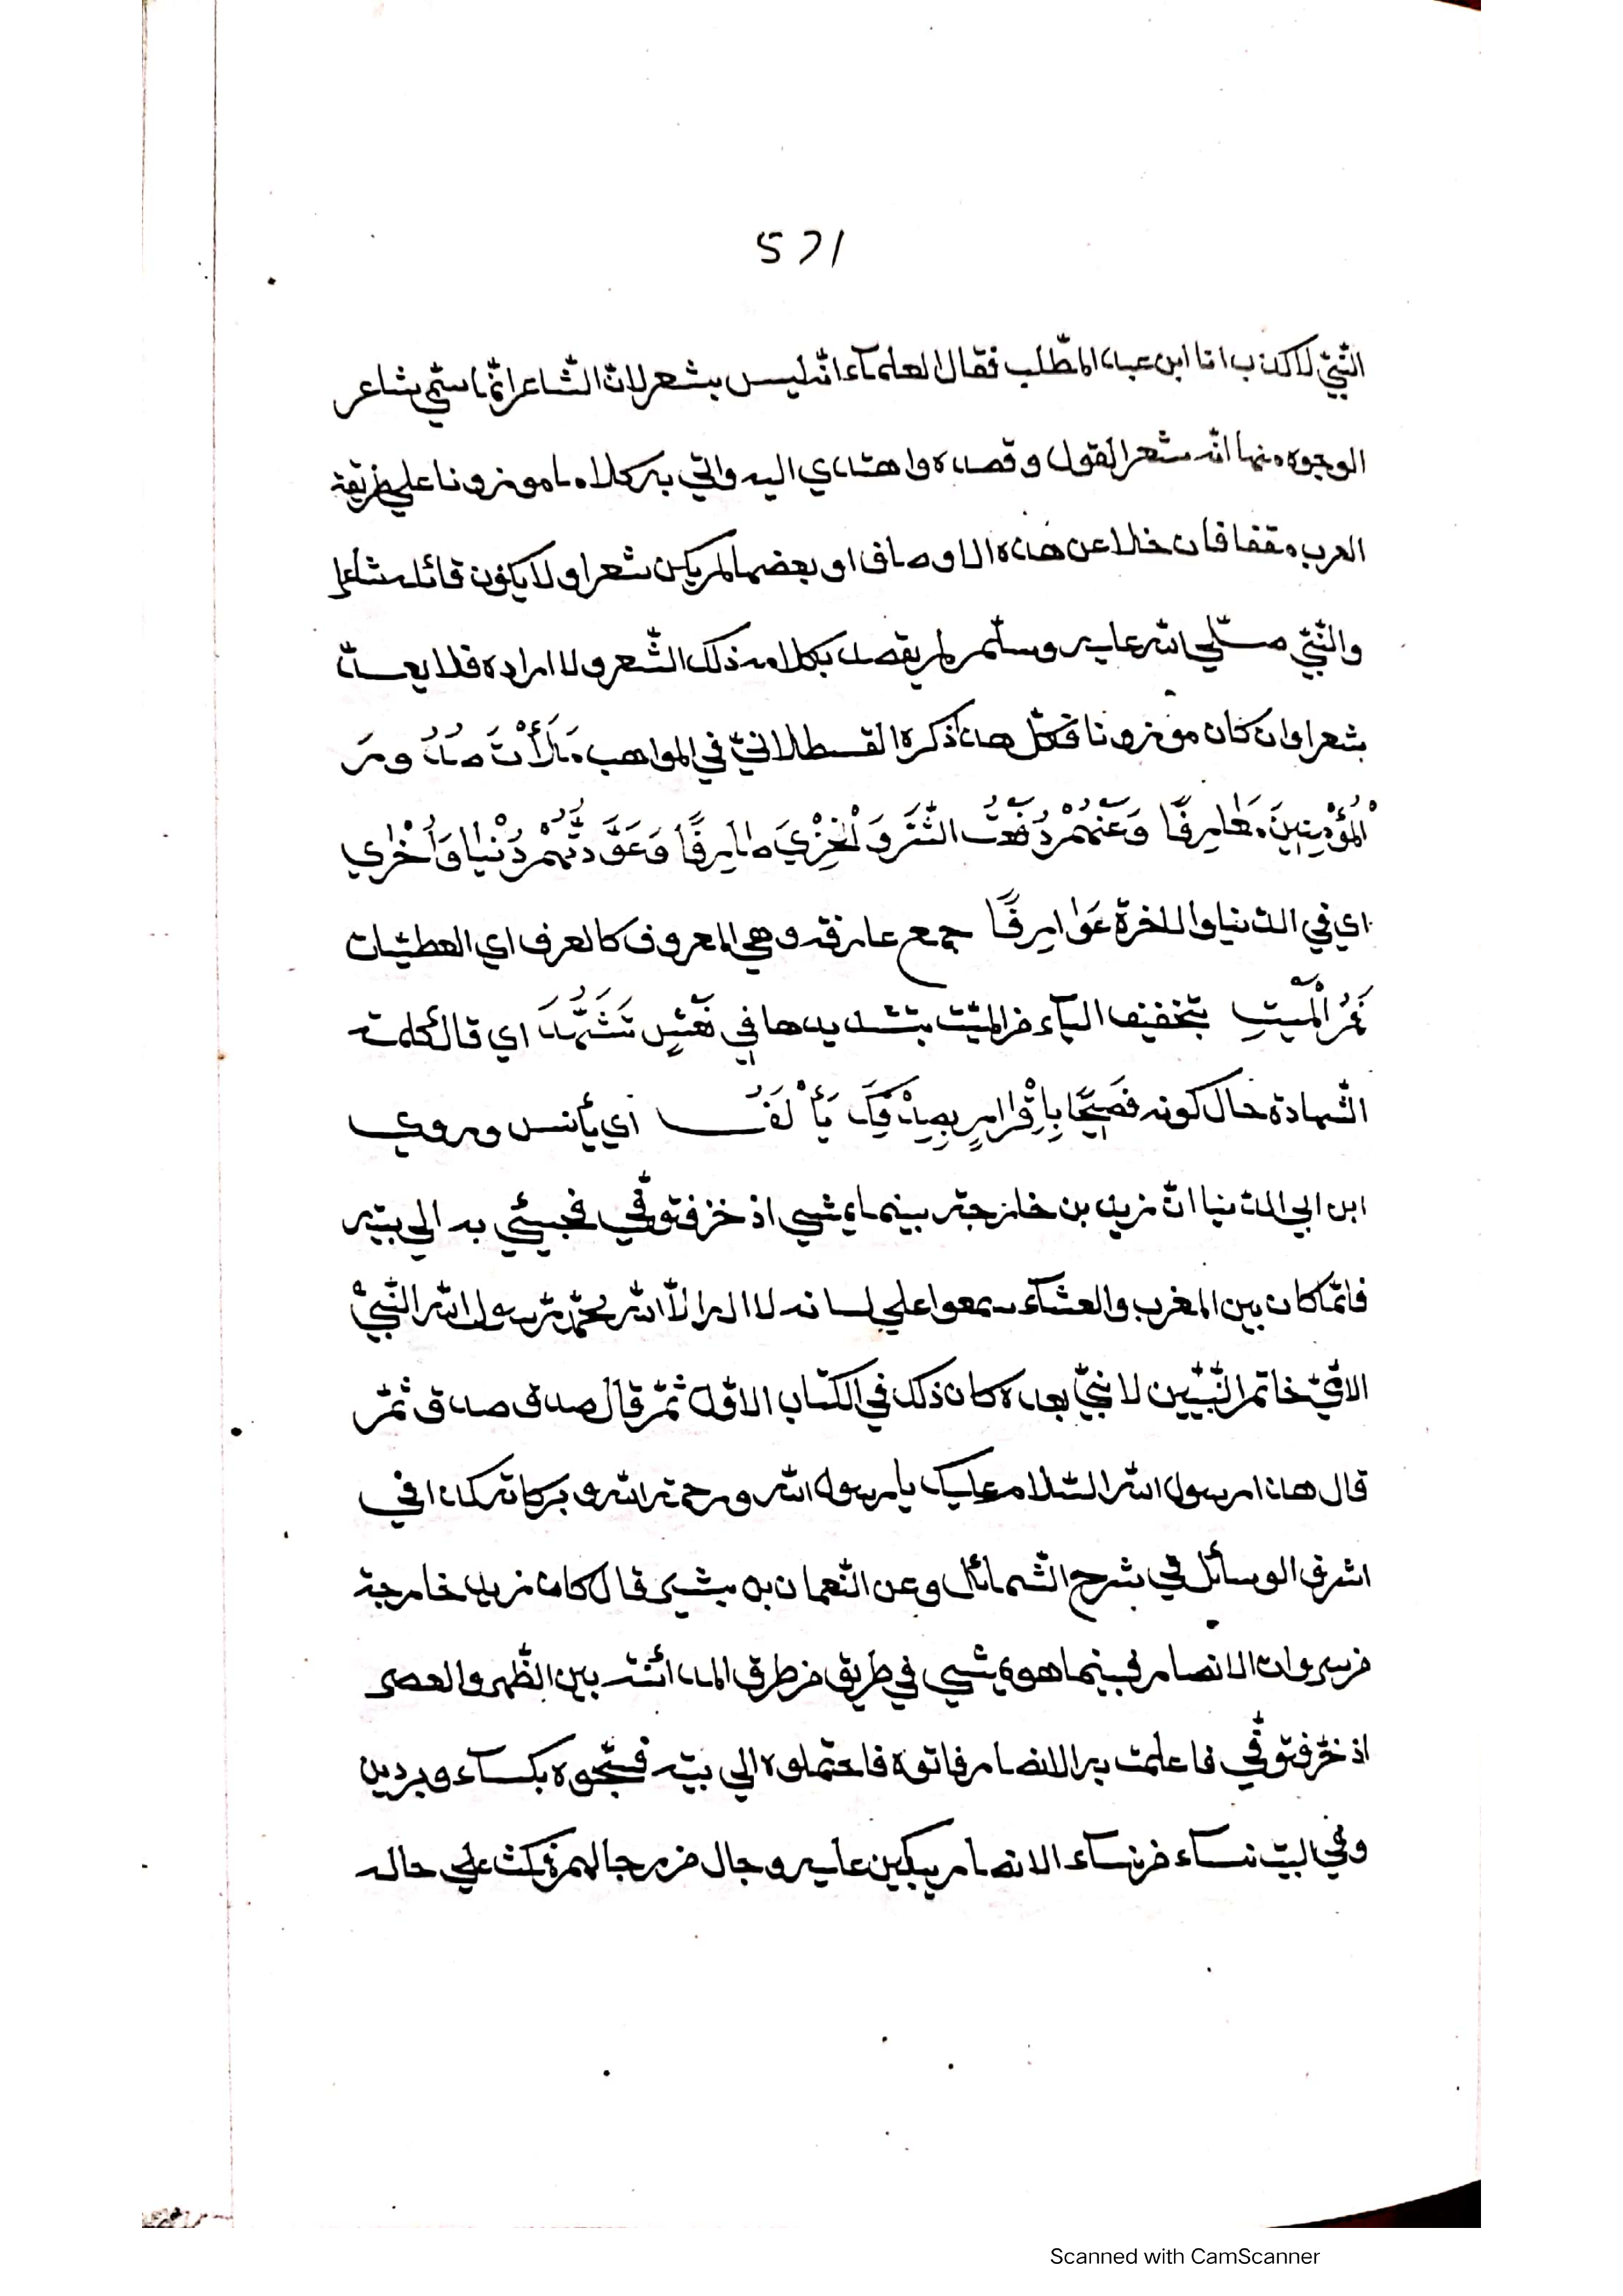 571
النّبيّ لا كذب انا ابن عبد المطّلب فقال العلمآء انّه ليس بشعر لانّ الشّاعر انّما سمّي شاعر
الوجوه منها انّه شعر القول وقصده واهتدي اليه واتي به كلاما موزونا علي طريقة
العرب مقفا فان خلا عن هذه الاوصاف او بعضها لم يكن شعرا ولا يكون قائله شاعرا
والنّبيّ صلّي الله عليه وسلّم لم يقصد بكلامه ذلك الشّعر ولا اراده فلا يعدّ
شعرا وان كان موزونا فكلّ هذا ذكره القسطلانيّ في المواهب مَلَأْتَ صُدُورَ
الْمُؤْمِنِينَ مَعَارِفًا وَعَنْهُمْ دَفَعْتَ الشَّرَّ وَالْخِزْيَ صَارِفًا وَعَوَّدتَّهُمْ دُنْيَا وَأُخْرٰي
اي في الدّنيا والاخرة عَوَارِفًا جمع عارفة وهي المعروف كالعرف اي العطيّات
نَمُرُ الْمَيْتِ بتخفيف اليآء من الميّت بتشديدها في نَعْشٍ تَشَهَّدَ اي قال كلمة
الشّهادة حال كونه فَصِيحًا بِإِقْرَارٍ بِصِدْقِكَ يَأْلَفُ اي يأنس وروي
ابن ابي الدّنيا انّ زيد بن خارجة بينما يمشي اذ خرّ فتوفّي فجيئي به الي بيته
فلمّا كان بين المغرب والعشآء سمعوا علي لسانه لا اله الّا الله محمّد رسول الله النّبيّ
الامّيّ خاتم النّبيّين لا نبيّ بعده كان ذلك في الكتاب الاوّل ثمّ قال صدق صدق ثمّ
قال هذا رسول الله السّلام عليك يا رسول الله ورحمة الله وبركاته كذا في
اشرف الوسائل في شرح الشّمائل وعن النّعمان بن بشير قال كان زيد خارجة
من سروات الانصار فبينما هو يمشي في طريق من طرق المدائنة بين الظّهر والعصر
اذ خرّ فتوفّي فاعلمت به الانصار فاتوه فاحتملوه الي بيته فسجّوه بكسآء وبردين
وفي البيت نسآء من نسآء الانصار يبكين عليه وجال من رجالهم فمكث علي حاله
Scanned with CamScanner